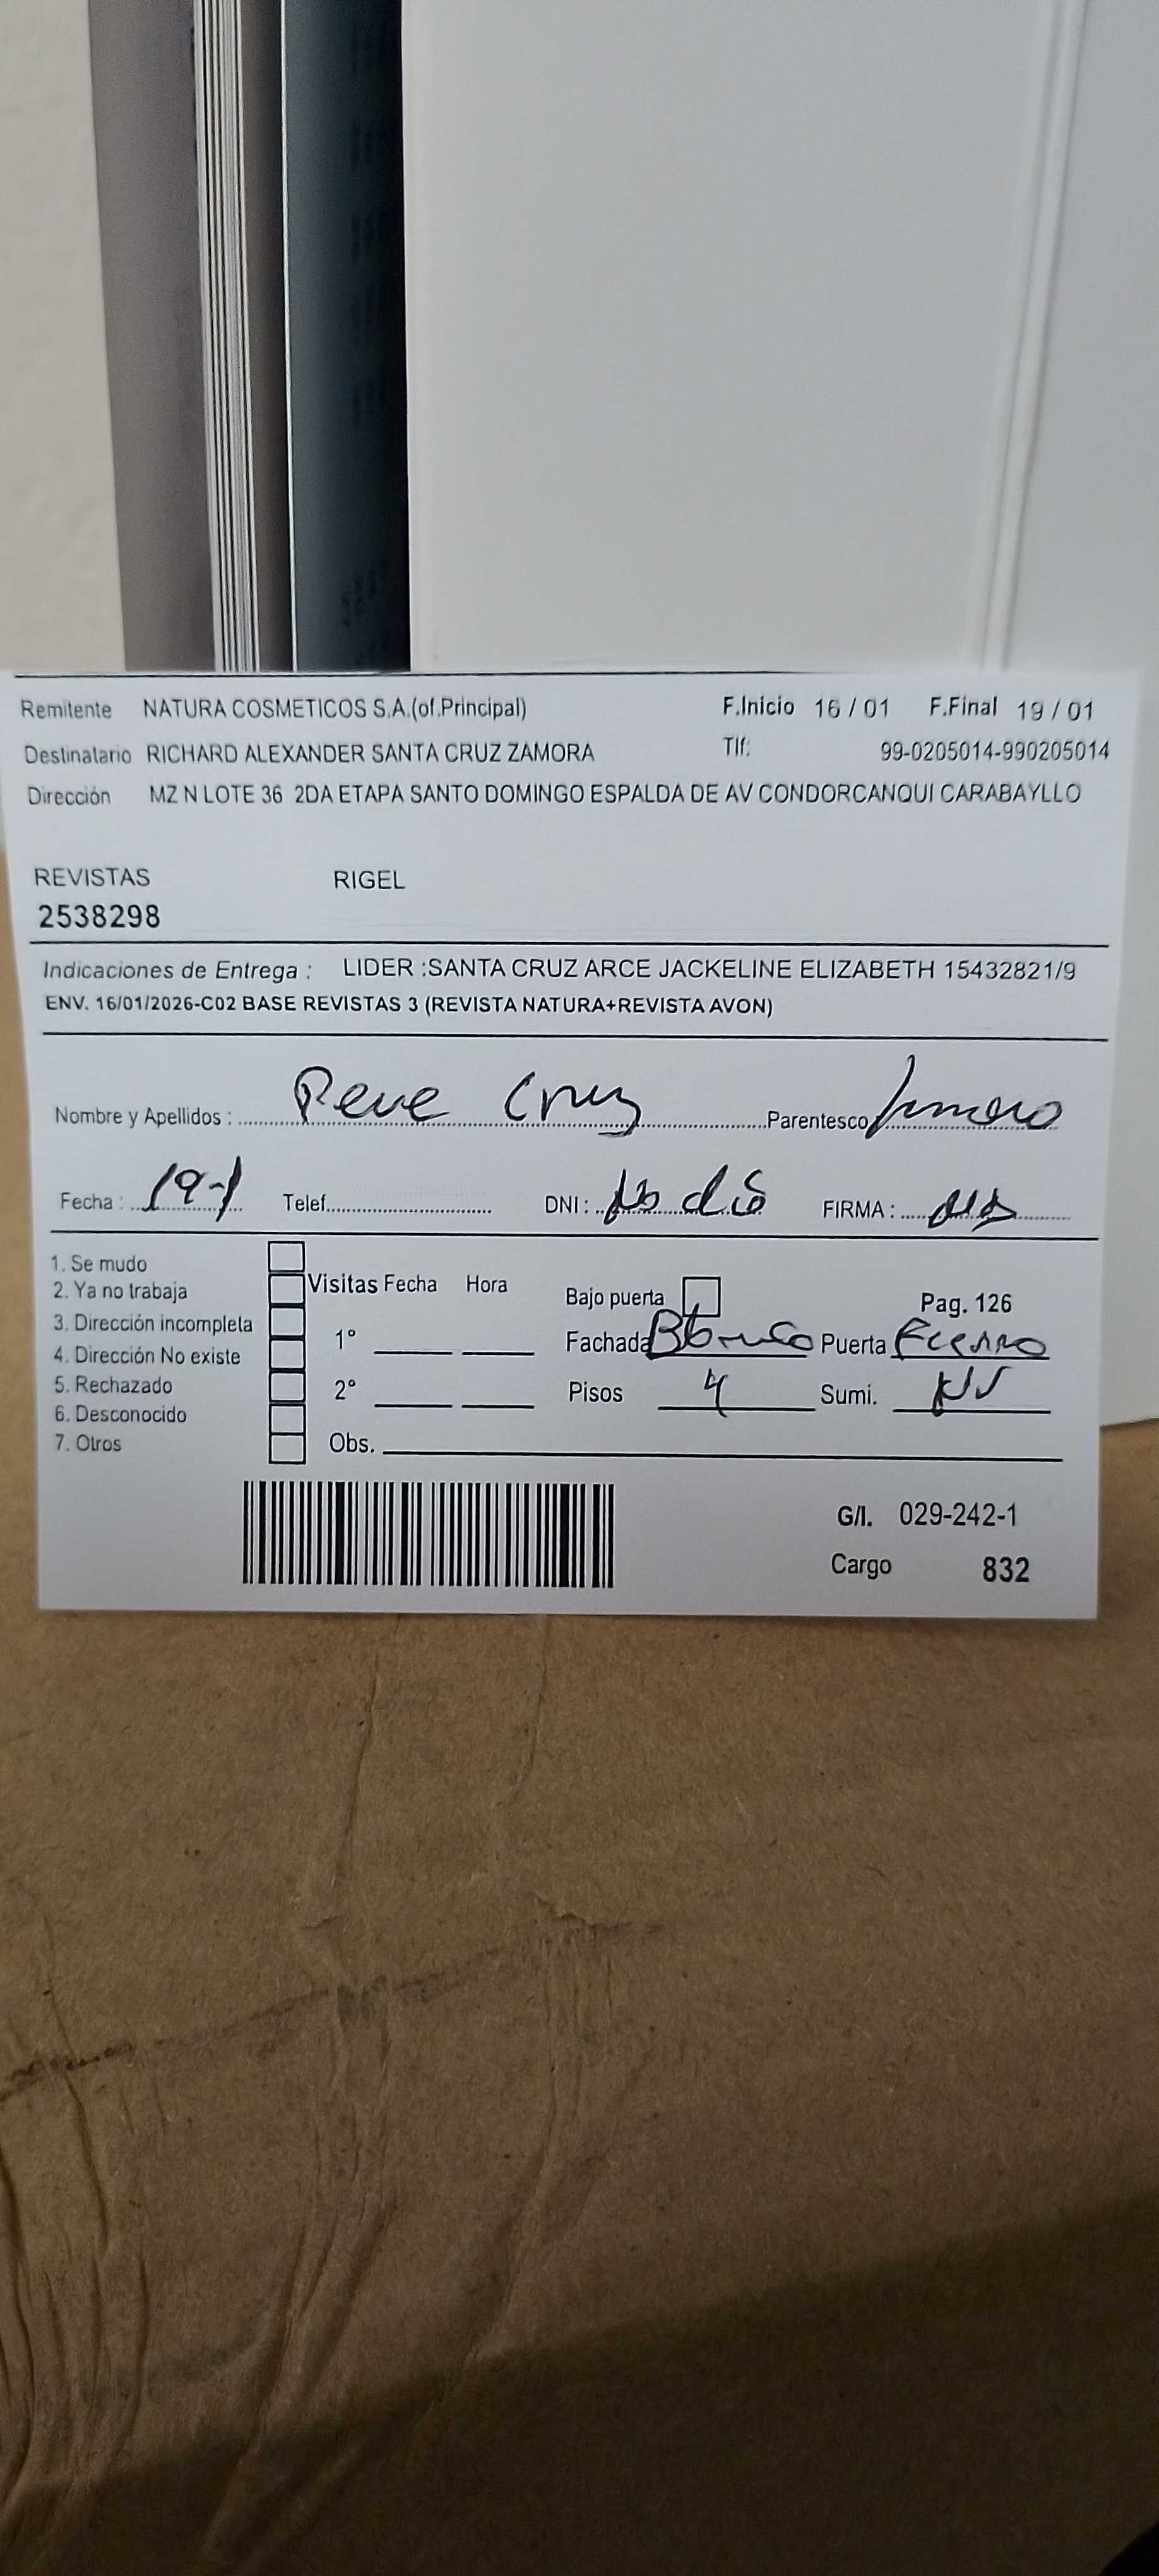 Remitente NATURA COSMETICOS S.A.(of.Principal) F.Inicio 16 / 01 F.Final 19 / 01
Destinatario RICHARD ALEXANDER SANTA CRUZ ZAMORA Tlf: 99-0205014-990205014
Dirección MZ N LOTE 36 2DA ETAPA SANTO DOMINGO ESPALDA DE AV CONDORCANQUI CARABAYLLO
REVISTAS RIGEL
2538298
Indicaciones de Entrega : LIDER :SANTA CRUZ ARCE JACKELINE ELIZABETH 15432821/9
ENV. 16/01/2026-C02 BASE REVISTAS 3 (REVISTA NATURA+REVISTA AVON)
Nombre y Apellidos : Cruz Parentesco
Fecha : 19-1 Telef. DNI : No dió FIRMA :
1. Se mudo
2. Ya no trabaja Visitas Fecha Hora Bajo puerta Pag. 126
3. Dirección incompleta
4. Dirección No existe 1° Fachada Blanco Puerta Fierro
5. Rechazado 2° Pisos 4 Sumi.
6. Desconocido
7. Otros Obs.
G/I. 029-242-1
Cargo 832